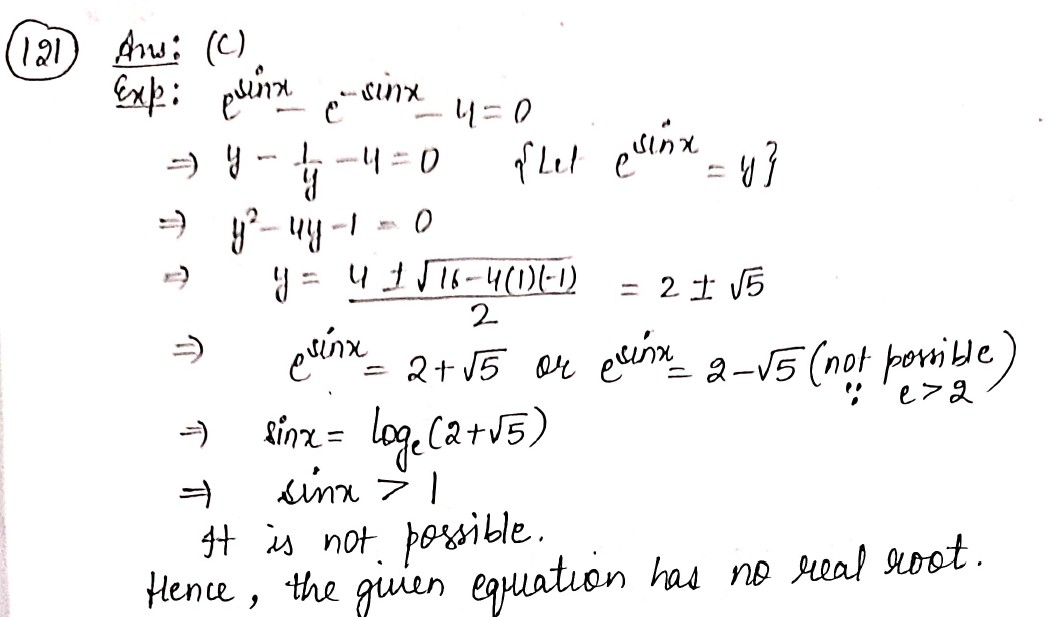 (121) Ans: (C)
Exp: e^sinx − e^−sinx − 4 = 0
⇒ y − 1/y − 4 = 0 {Let e^sinx = y}
⇒ y² − 4y − 1 = 0
⇒ y = (4 ± √(16−4(1)(−1)))/2 = 2 ± √5
⇒ e^sinx = 2+√5 or e^sinx = 2−√5 (not possible)
∵ e > 2
⇒ sinx = logₑ(2+√5)
⇒ sinx > 1
It is not possible.
Hence, the given equation has no real root.